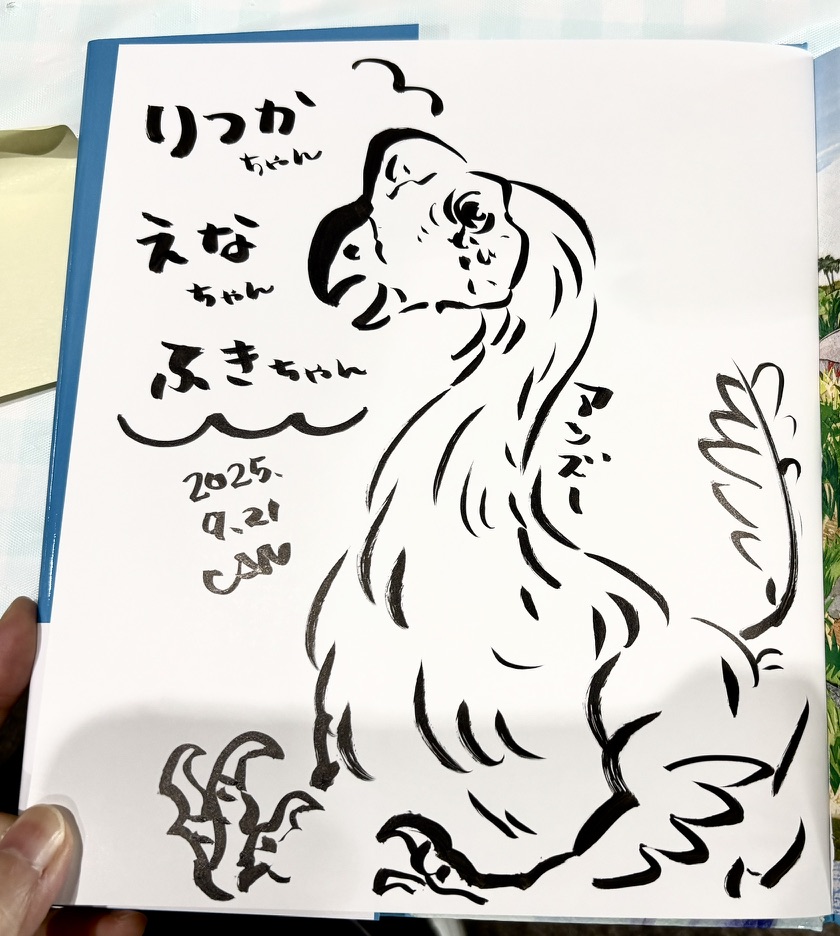 りつか
ちゃん
えな
ちゃん
ふきちゃん
2025.
9.21
アンズー